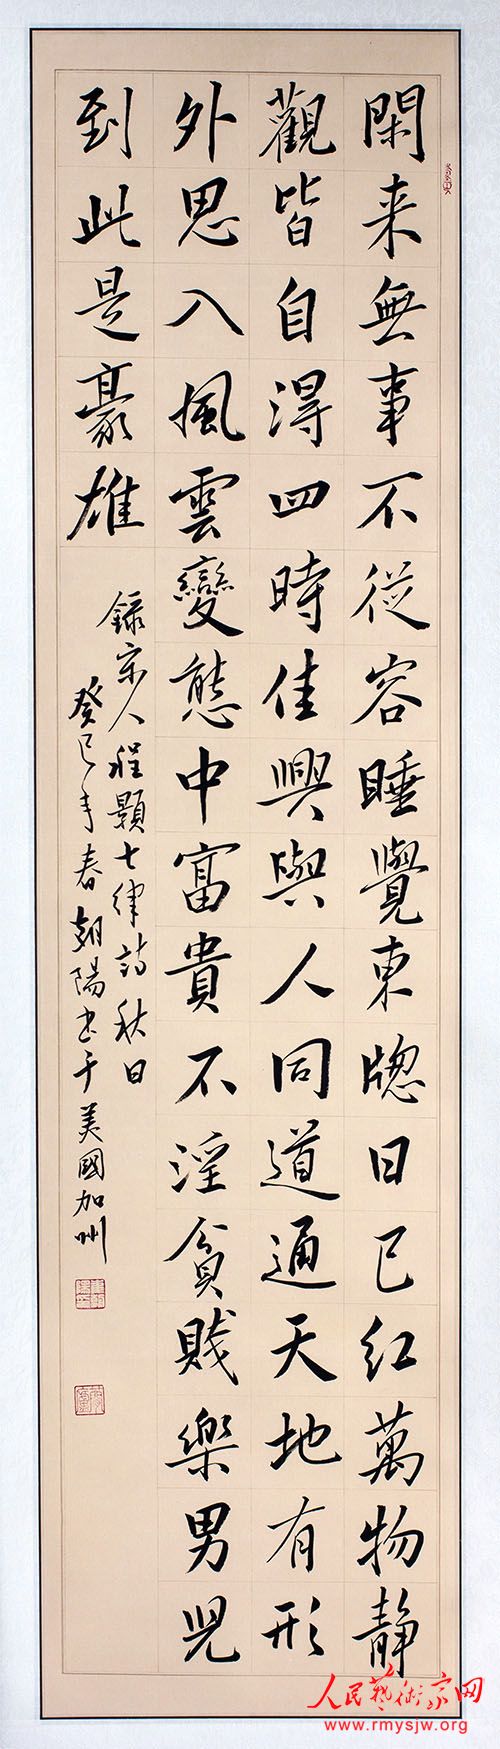 閑来無事不從容睡覺東牕日已红萬物静
觀皆自得四時佳興與人同道通天地有形
外思入風雲變態中富貴不淫貧賤樂男児
到此是豪雄
録宋人程顥七律詩秋日
癸巳年春朝陽书于美國加州
人民藝術家网
www.rmysjw.org